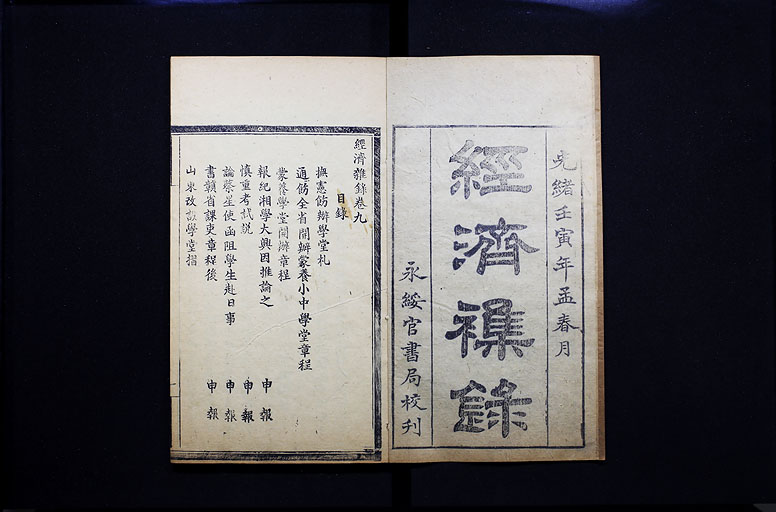 光緒壬寅年孟春月
經濟襍錄
永綏官書局校刊
經濟雜錄卷九
目錄
撫憲飭辦學堂札
通飭全省開辦蒙養小中學堂章程
蒙養學堂開辦章程
報紀湘學大興因推論之 申報
慎重考試說 申報
論蔡星使函阻學生赴日事 申報
書贛省課吏章程後 申報
山東改設學堂摺